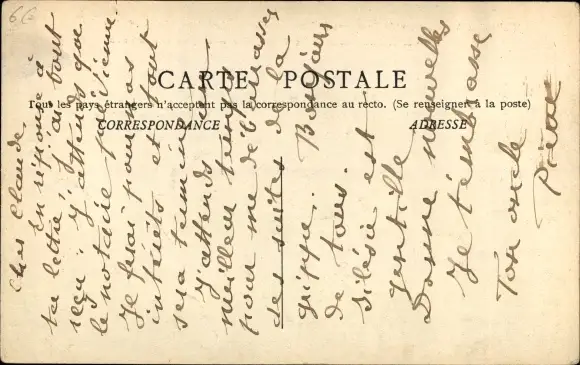 6€
CARTE POSTALE
Tous les pays étrangers n'acceptent pas la correspondance au recto. (Se renseigner à la poste)
CORRESPONDANCE
ADRESSE
Cher Claude,
En réponse à
ta lettre, j'ai tout
reçu. J'attends que
le notaire prévienne.
Je ferai pour nos
intérêts et tout
sera terminé
J'attends un
meilleur temps
pour me débarrasser
des suites de la
grippe. Bonjours
de tous.
est
gentille
Donne nouvelles
Je t'embrasse
Ton oncle
Pierre